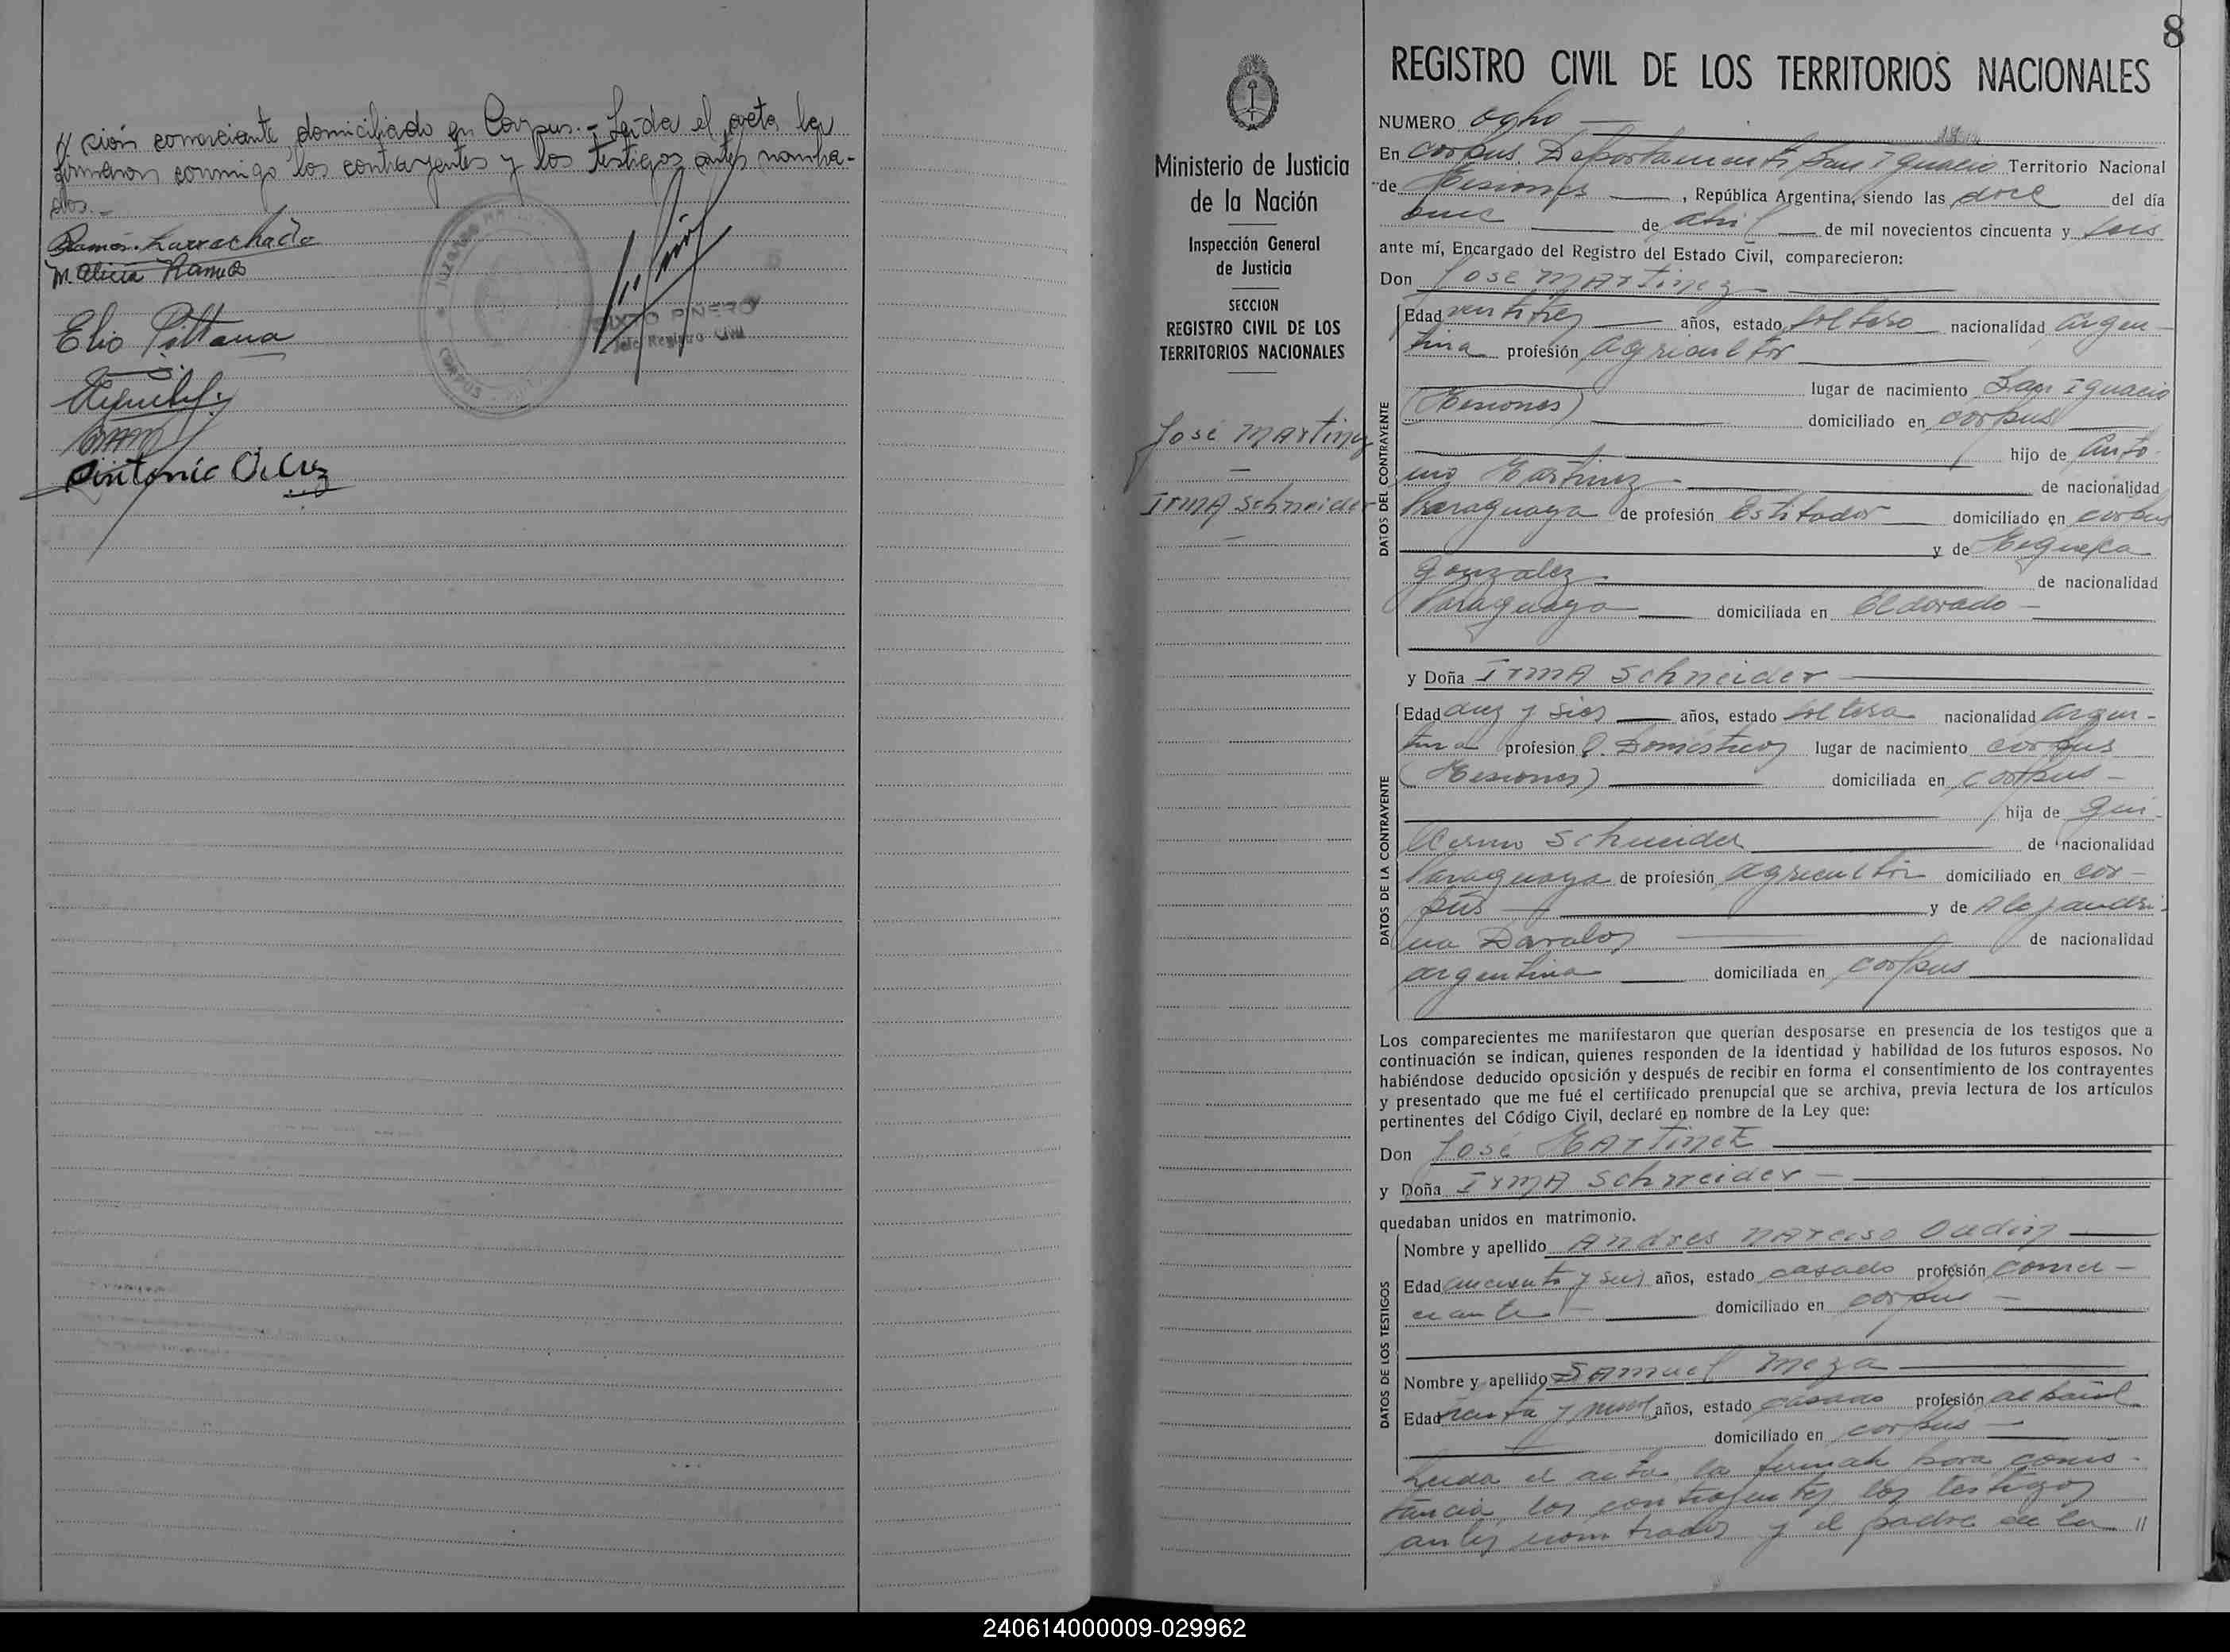 // ción comerciante, domiciliado en Corpus.- Leída el acta la
firmaron conmigo los contrayentes y los testigos antes nombra-
dos.-
Ramón Larrachado
M Alicia Ramos
Elio Pittana
Antonio
SIXTO PIÑERO
Jefe Registro Civil
CORPUS
8
REGISTRO CIVIL DE LOS TERRITORIOS NACIONALES
Ministerio de Justicia
de la Nación
Inspección General
de Justicia
SECCION
REGISTRO CIVIL DE LOS
TERRITORIOS NACIONALES
José Martinez
Irma Schneider
NUMERO ocho
En Corpus, Departamento San Ignacio Territorio Nacional
de Misiones, República Argentina, siendo las doce del día
once de abril de mil novecientos cincuenta y seis
ante mí, Encargado del Registro del Estado Civil, comparecieron:
Don José Martinez
DATOS DEL CONTRAYENTE
Edad veintitres años, estado soltero nacionalidad argen-
tina profesión agricultor
lugar de nacimiento San Ignacio
(Misiones) domiciliado en Corpus
hijo de Anto-
nio Martinez de nacionalidad
Paraguaya de profesión domiciliado en Corpus
y de
Gonzalez de nacionalidad
Paraguaya domiciliada en Eldorado
y Doña Irma Schneider
DATOS DE LA CONTRAYENTE
Edad diez y seis años, estado soltera nacionalidad argen-
tina profesion Q. Domésticos lugar de nacimiento Corpus
(Misiones) domiciliada en Corpus
hija de Gui-
llermo Schneider de nacionalidad
Paraguaya de profesión agricultor domiciliado en Cor-
pus y de Alejandri-
na Davalos de nacionalidad
argentina domiciliada en Corpus
Los comparecientes me manifestaron que querían desposarse en presencia de los testigos que a
continuación se indican, quienes responden de la identidad y habilidad de los futuros esposos. No
habiéndose deducido oposición y después de recibir en forma el consentimiento de los contrayentes
y presentado que me fué el certificado prenupcial que se archiva, previa lectura de los artículos
pertinentes del Código Civil, declaré en nombre de la Ley que:
Don José Martinez
y Doña Irma Schneider
quedaban unidos en matrimonio.
DATOS DE LOS TESTIGOS
Nombre y apellido Andres Narciso Oudin
Edad cincuenta y seis años, estado casado profesión comer-
ciante domiciliado en Corpus
Nombre y apellido Samuel Meza
Edad treinta y nueve años, estado casado profesión albañil
domiciliado en Corpus
Leida el acta, la firman para cons-
tancia los contrayentes los testigos
antes nombrados y el padre de la //
240614000009-029962